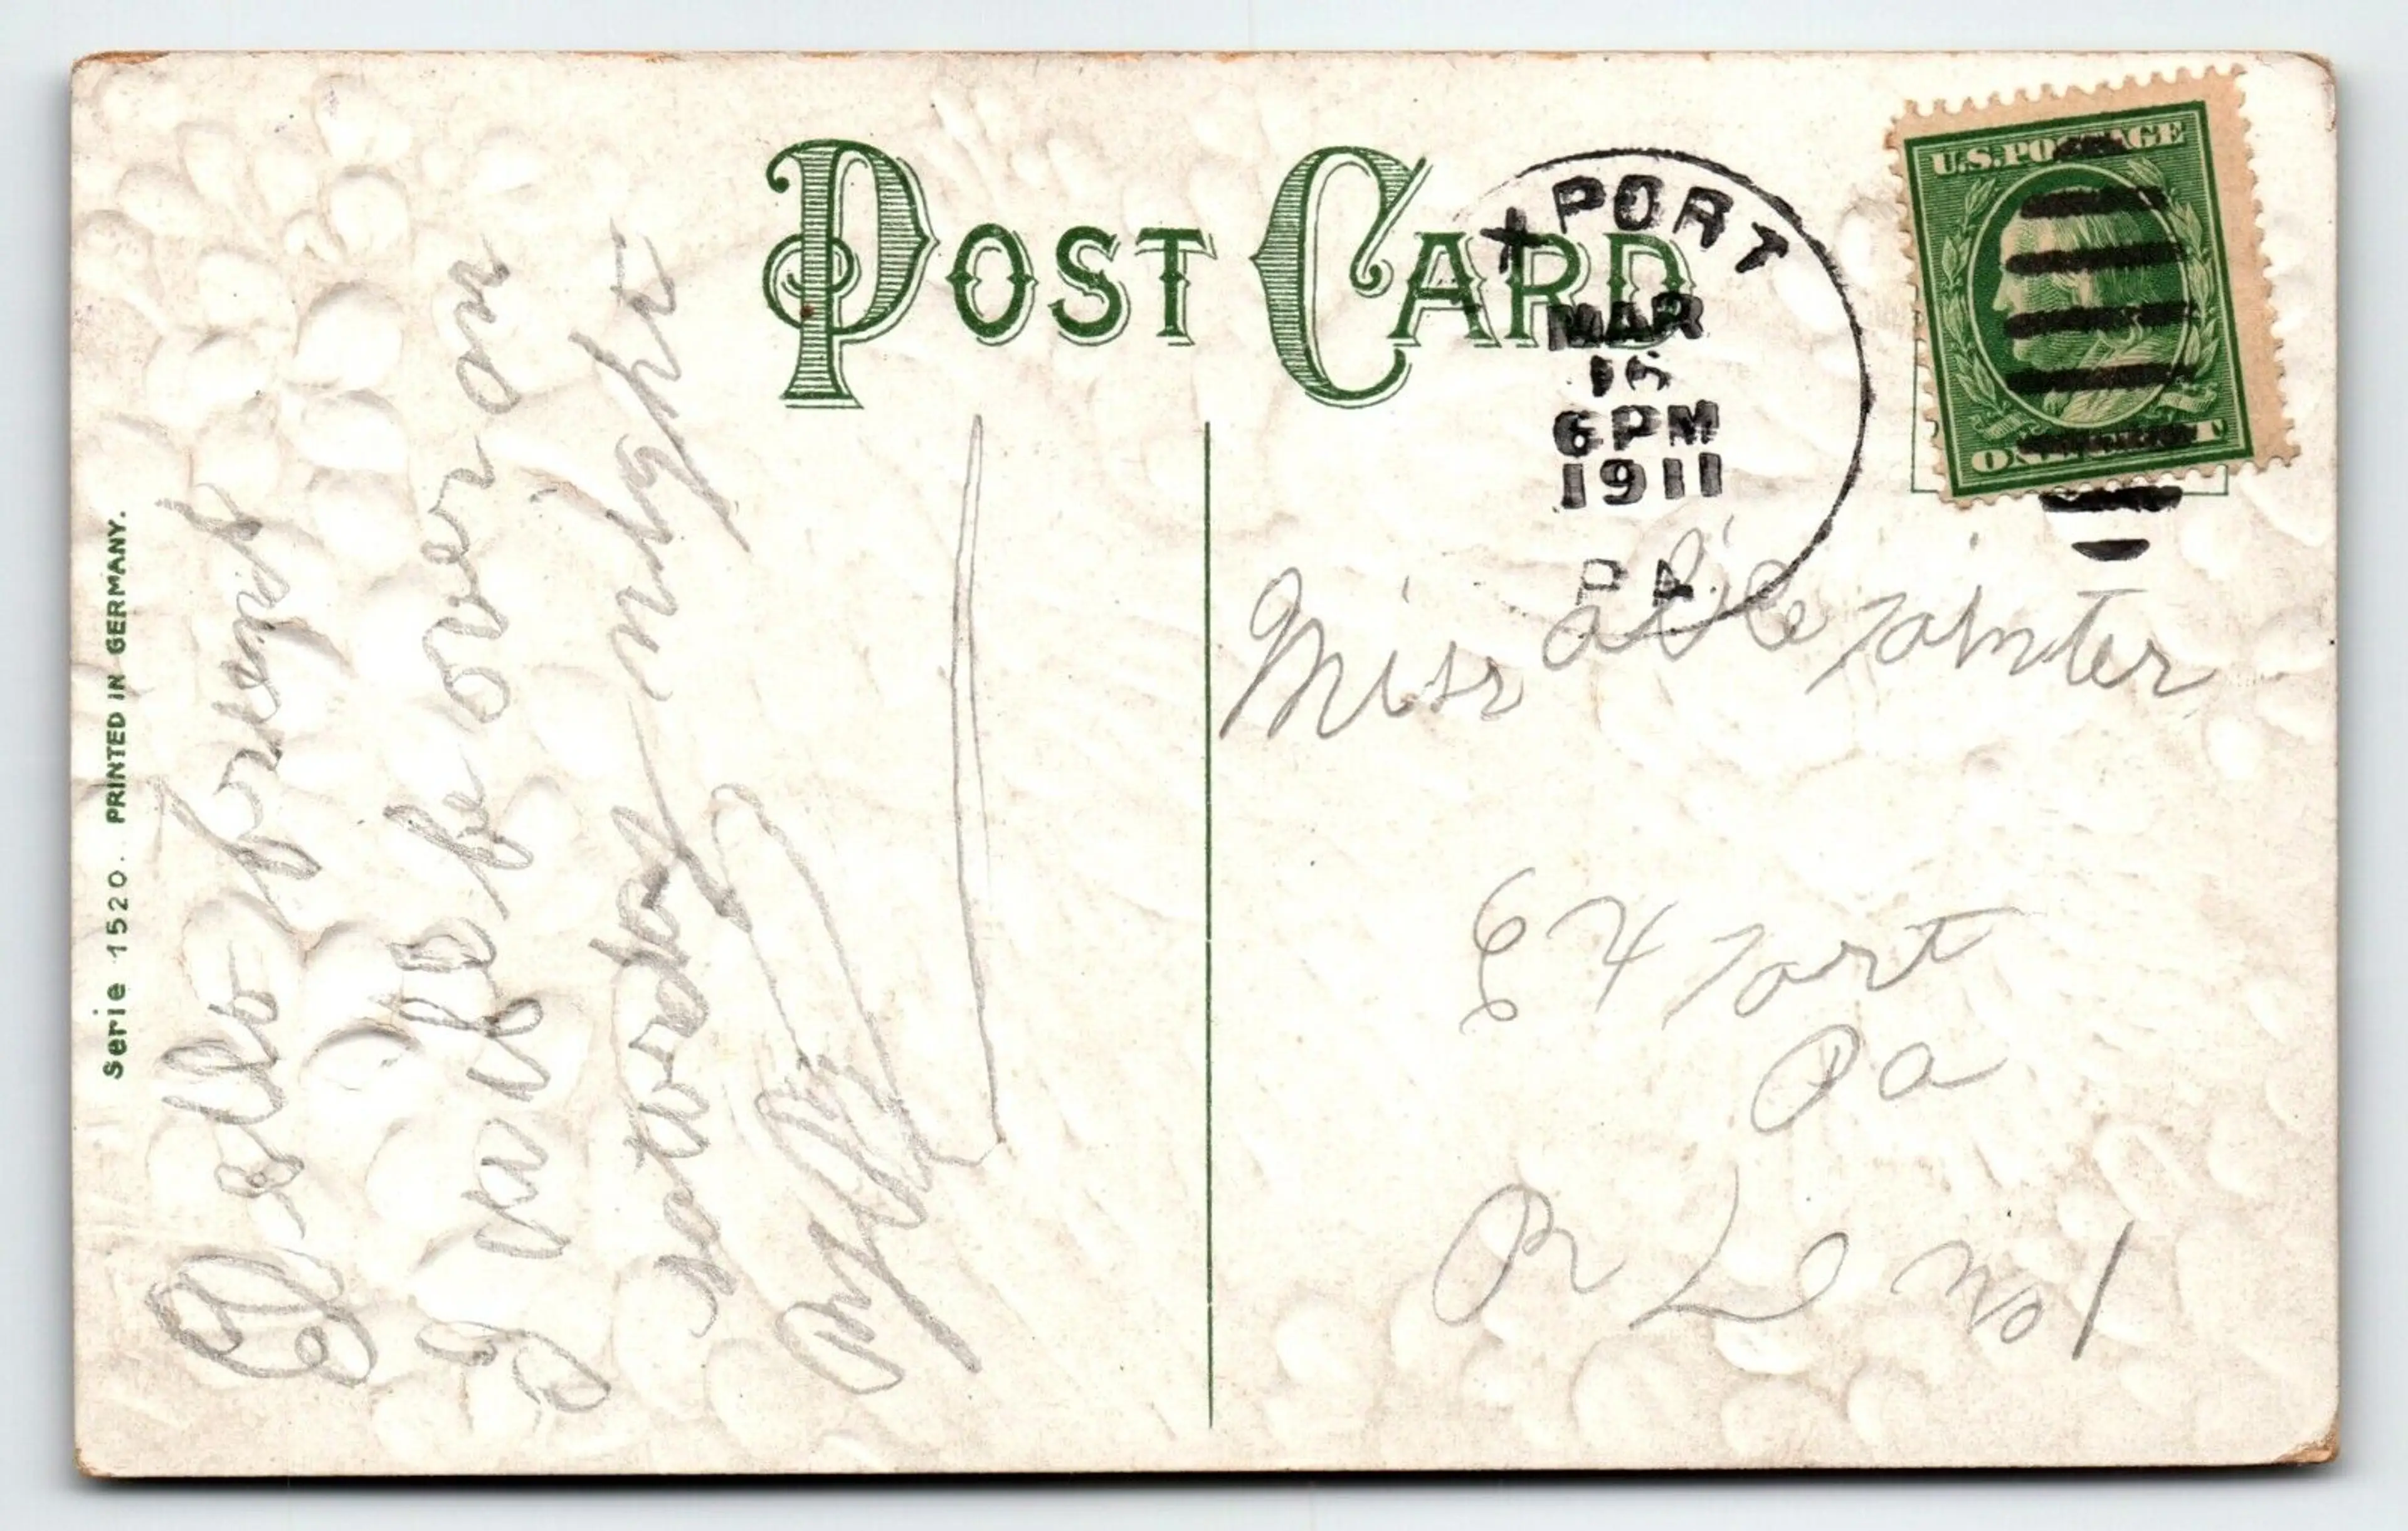 POST CARD
Serie 1520. PRINTED IN GERMANY.
U.S. POSTAGE
XPORT
MAR
16
6 PM
1911
PA.
Hello friend
I will be over on
saturday night
Miss
Painter
Export
Pa
R No 1